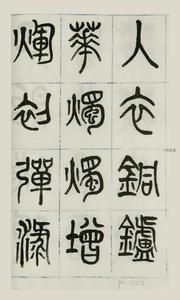 人衣銅鑪
華燭燭增
煇初彈淥